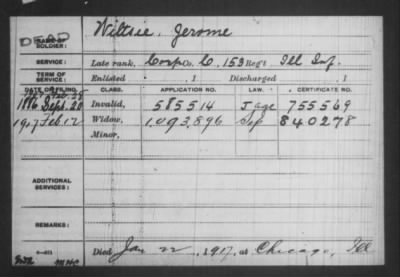 DEAD
NAME OF SOLDIER: Wiltsie, Jerome
SERVICE: Late rank, Corp Co. C, 153 Reg't Ill Inf.
TERM OF SERVICE: Enlisted , 1 Discharged , 1
DATE OF FILING. CLASS. APPLICATION NO. LAW. CERTIFICATE NO.
1886 Sept. 20 Invalid, 585514 age 755569
1917 Feb 12 Widow, 1,093,896 840278
Minor,
ADDITIONAL SERVICES:
REMARKS:
Died Jan 22, 1917, at Chicago, Ill